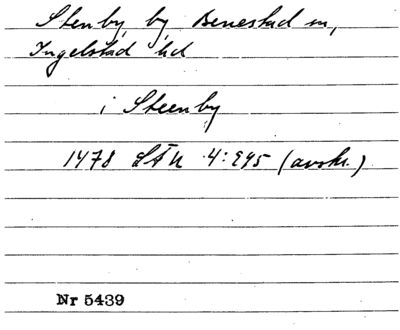 Stenby, by, Benestad sn,
Ingelstad hd
i Steenby
1478 LÅU 4:995 (avskr.)
Nr 5439